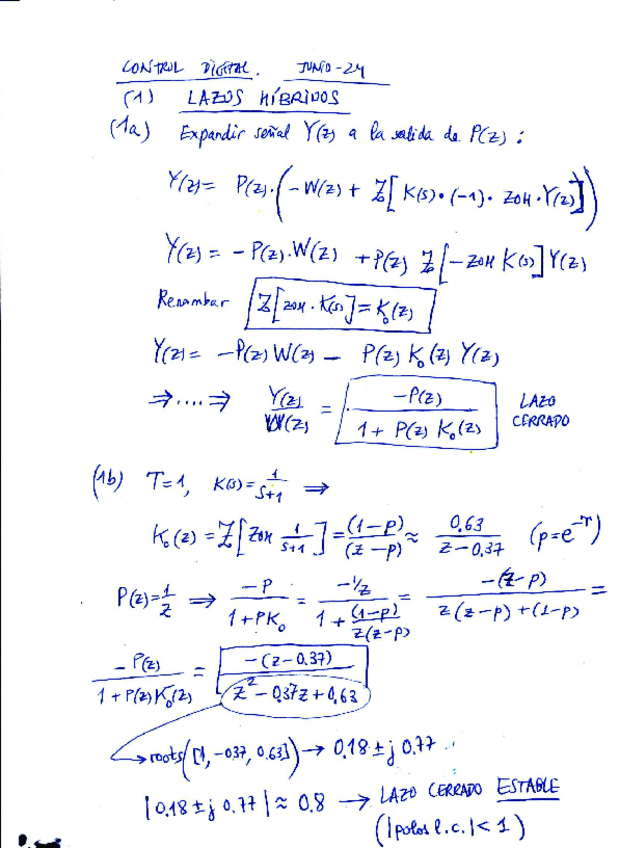 CONTROL DIGITAL. JUNIO-24
(1) LAZOS HÍBRIDOS
(1a) Expandir señal Y(z) a la salida de P(z):
Y(z) = P(z)·(-W(z) + Z[K(s)·(-1)·ZOH·Y(z)])
Y(z) = -P(z).W(z) + P(z) Z[-ZOH K(s)] Y(z)
Renombar Z[ZOH·K(s)] = K₀(z)
Y(z) = -P(z) W(z) - P(z) K₀(z) Y(z)
⇒ .... ⇒ Y(z)/W(z) = -P(z)/(1 + P(z) K₀(z)) LAZO CERRADO
(1b) T=1, K(s) = 1/(s+1) ⇒
K₀(z) = Z[ZOH 1/(s+1)] = (1-p)/(z-p) ≈ 0.63/(z-0.37) (p=e^-T)
P(z) = 1/z ⇒ -P/(1+PK₀) = (-1/z)/(1 + (1-p)/(z(z-p))) = -(z-p)/(z(z-p)+(1-p)) =
-P(z)/(1+P(z)K₀(z)) = -(z-0.37)/(z²-0.37z+0.63)
roots([1, -0.37, 0.63]) → 0.18 ± j 0.77
|0.18 ± j 0.77| ≈ 0.8 → LAZO CERRADO ESTABLE
(|polos l.c.| < 1)